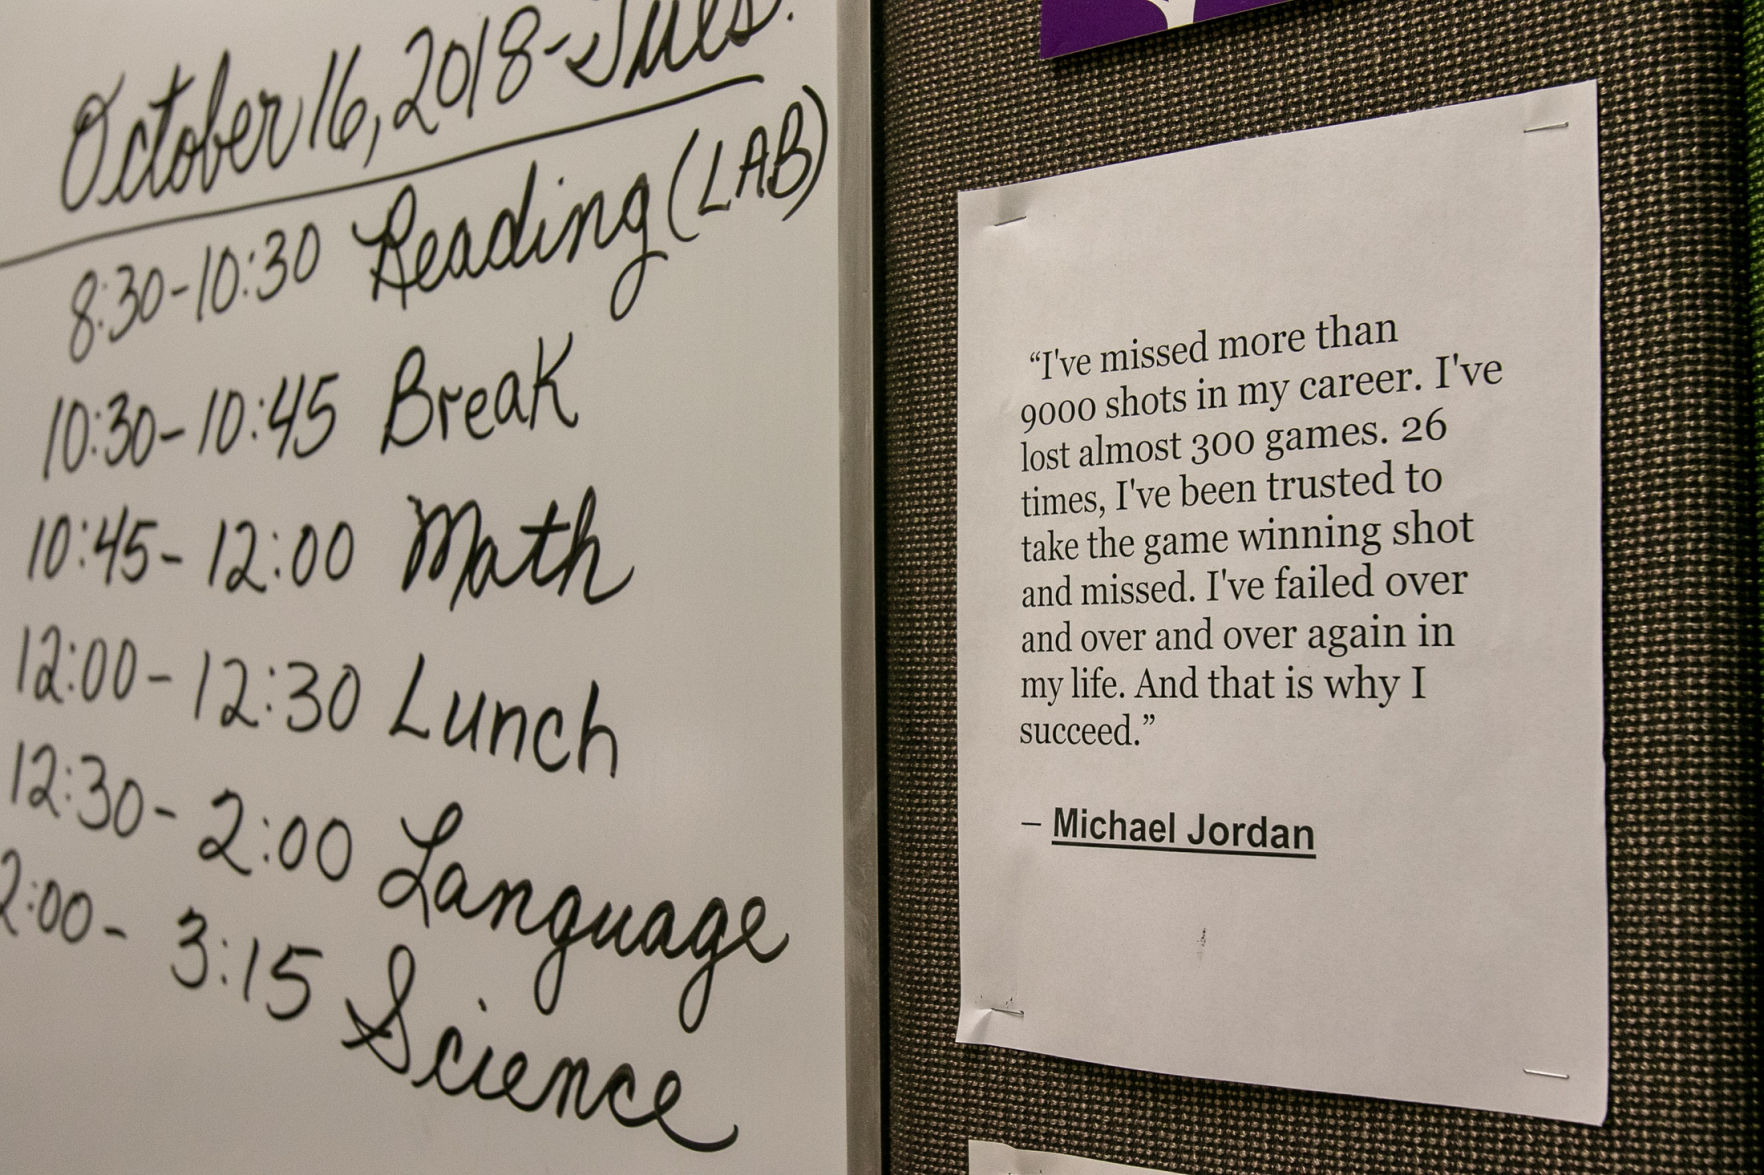 October 16, 2018-Tues.
8:30-10:30 Reading (LAB)
10:30-10:45 Break
10:45-12:00 Math
12:00-12:30 Lunch
12:30-2:00 Language
2:00-3:15 Science
“I've missed more than
9000 shots in my career. I've
lost almost 300 games. 26
times, I've been trusted to
take the game winning shot
and missed. I've failed over
and over and over again in
my life. And that is why I
succeed.”
– Michael Jordan